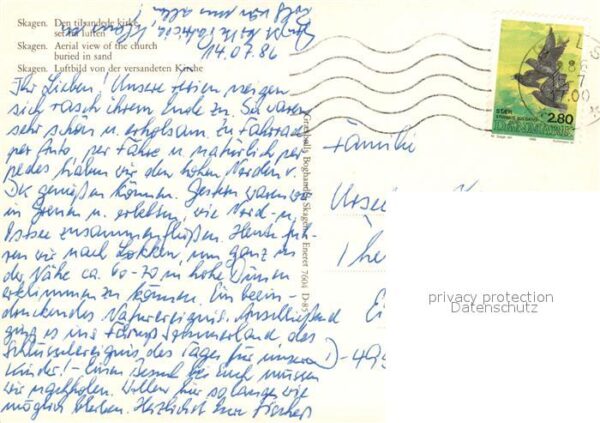 Skagen. Den tilsandede kirke
set fra luften
Skagen. Aerial view of the church
buried in sand
Skagen. Luftbild von der versandeten Kirche
14.07.86
Ihr Lieben! Unsere Ferien neigen
sich rasch ihrem Ende zu. Sie waren
sehr schön u. erholsam. Zu Fahrrad
per Auto, per Fähre u. natürlich per
pedes haben wir den hohen Norden v.
Dk genießen können. Gestern waren wir
in Grenen u. erlebten, wie Nord- u.
Ostsee zusammenfließen. Heute
wir nach Løkken, um ganz in
der Nähe ca. 60-70 m hohe Dünen
erklimmen zu können. Ein beein-
druckendes Naturereignis. Anschließend
ging es ins Fårup Sommerland, das
Schlüsselereignis des Tages für unsere
Kinder! - Einen Besuch bei Euch müssen
wir nachholen. Wollen hier so lange wie
möglich bleiben. Herzlichst Eure Fischers
Grønballs Boghandel Skagen Eneret 7604 D-85
Familie
D-495
2.80
DANMARK
privacy protection
Datenschutz